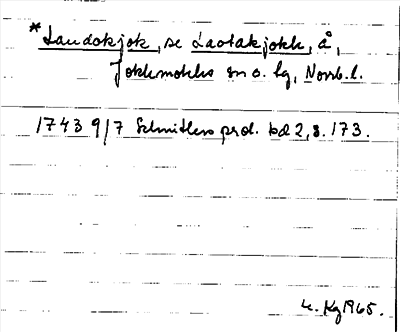 *Laudokjok, se Laotakjokk, å,
Jokkmokks sn o. lg, Norrb.l.
1743 9/7 Schnitlers prot. bd 2, s. 173.
4. Kg 1965.